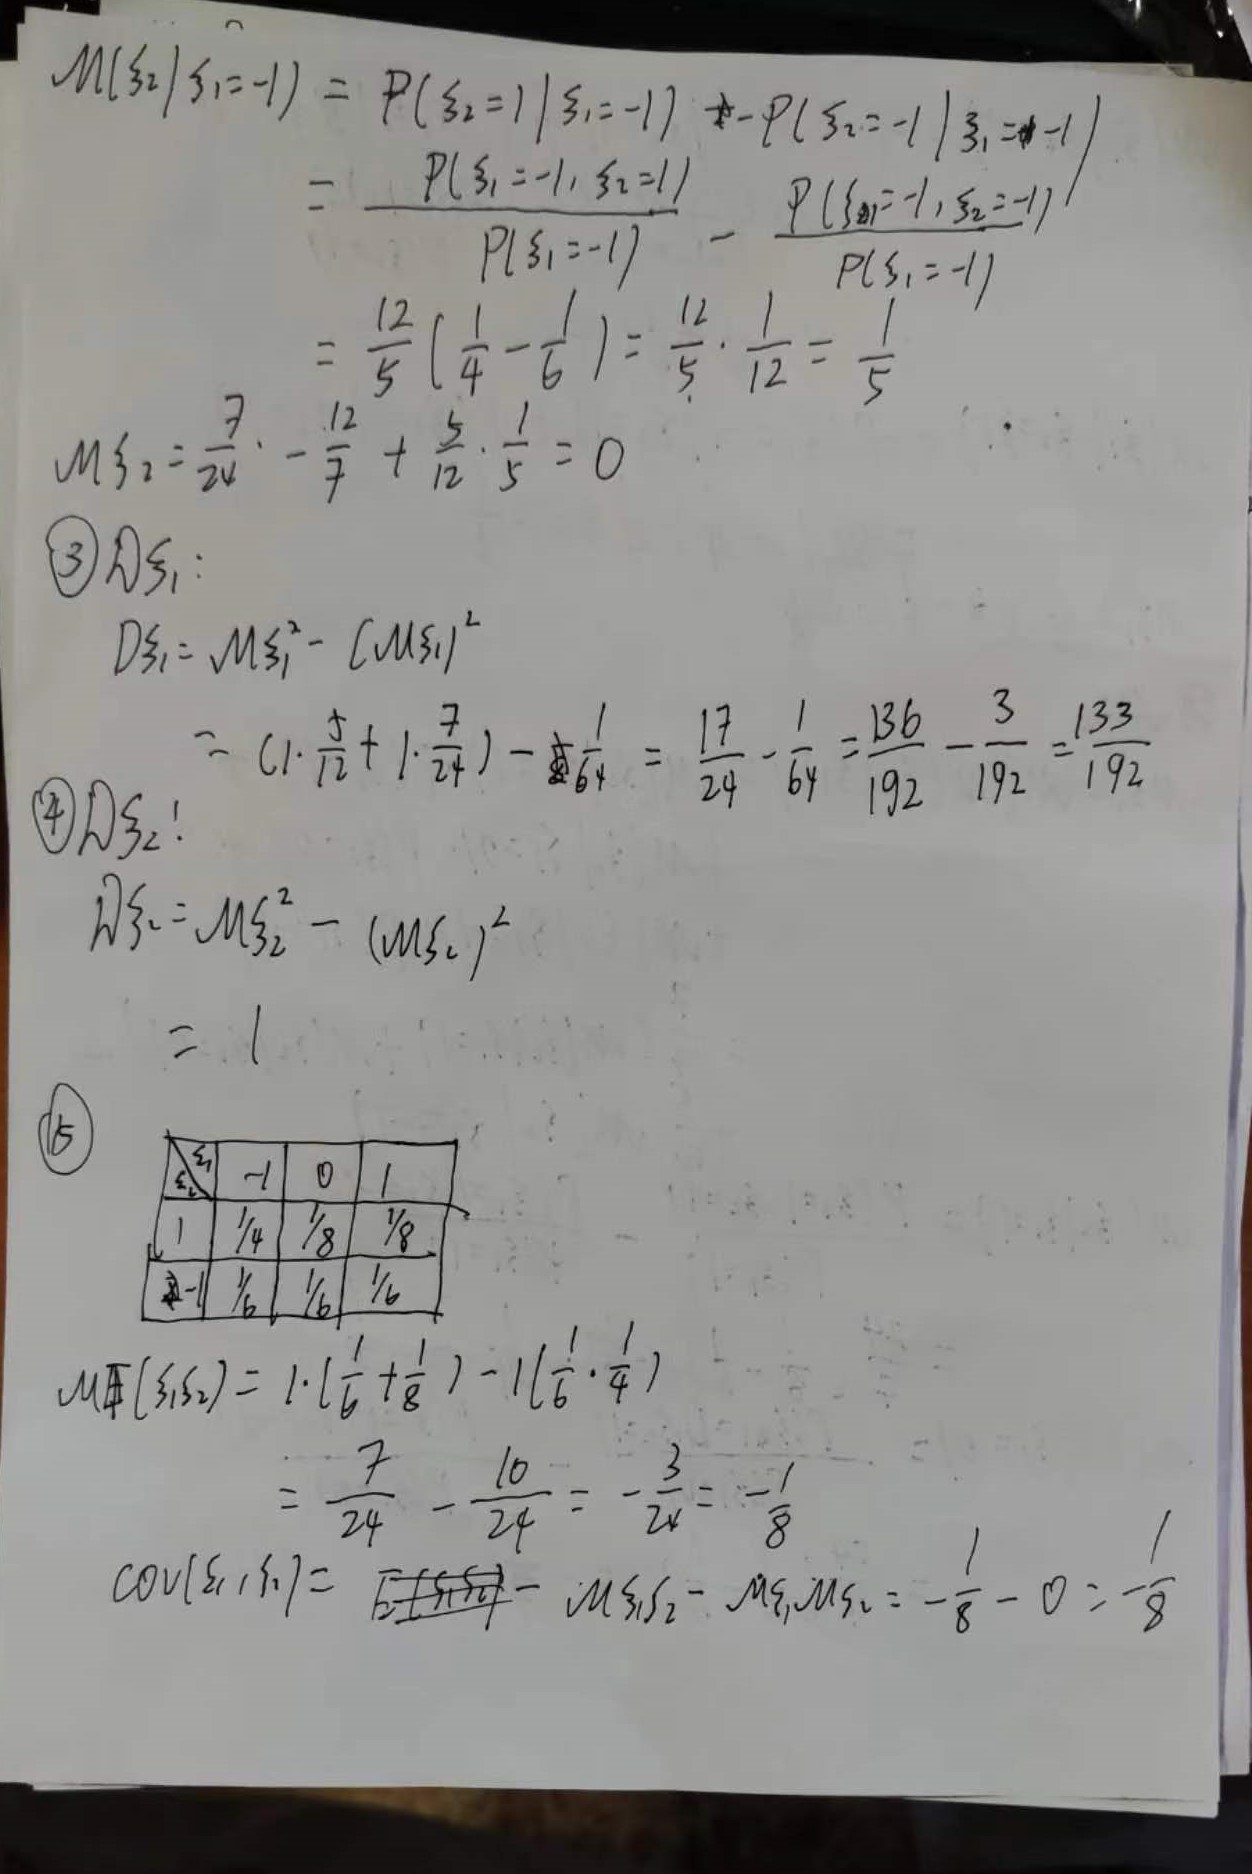 M(ξ₂|ξ₁=-1) = P(ξ₂=1|ξ₁=-1) - P(ξ₂=-1|ξ₁=-1)
= P(ξ₁=-1, ξ₂=1)/P(ξ₁=-1) - P(ξ₁=-1, ξ₂=-1)/P(ξ₁=-1)
= 12/5 (1/4 - 1/6) = 12/5 · 1/12 = 1/5
Mξ₂ = 7/24 · - 12/7 + 5/12 · 1/5 = 0
③ Dξ₁:
Dξ₁ = Mξ₁² - (Mξ₁)²
= (1·5/12 + 1·7/24) - 1/64 = 17/24 - 1/64 = 136/192 - 3/192 = 133/192
④ Dξ₂:
Dξ₂ = Mξ₂² - (Mξ₂)²
= 1
⑤
ξ₂ ξ₁ -1 0 1
1 1/4 1/8 1/8
-1 1/6 1/6 1/6
M(ξ₁ξ₂) = 1·(1/6 + 1/8) - 1(1/6 · 1/4)
= 7/24 - 10/24 = -3/24 = -1/8
cov(ξ₁, ξ₂) = - Mξ₁ξ₂ - Mξ₁Mξ₂ = -1/8 - 0 = -1/8